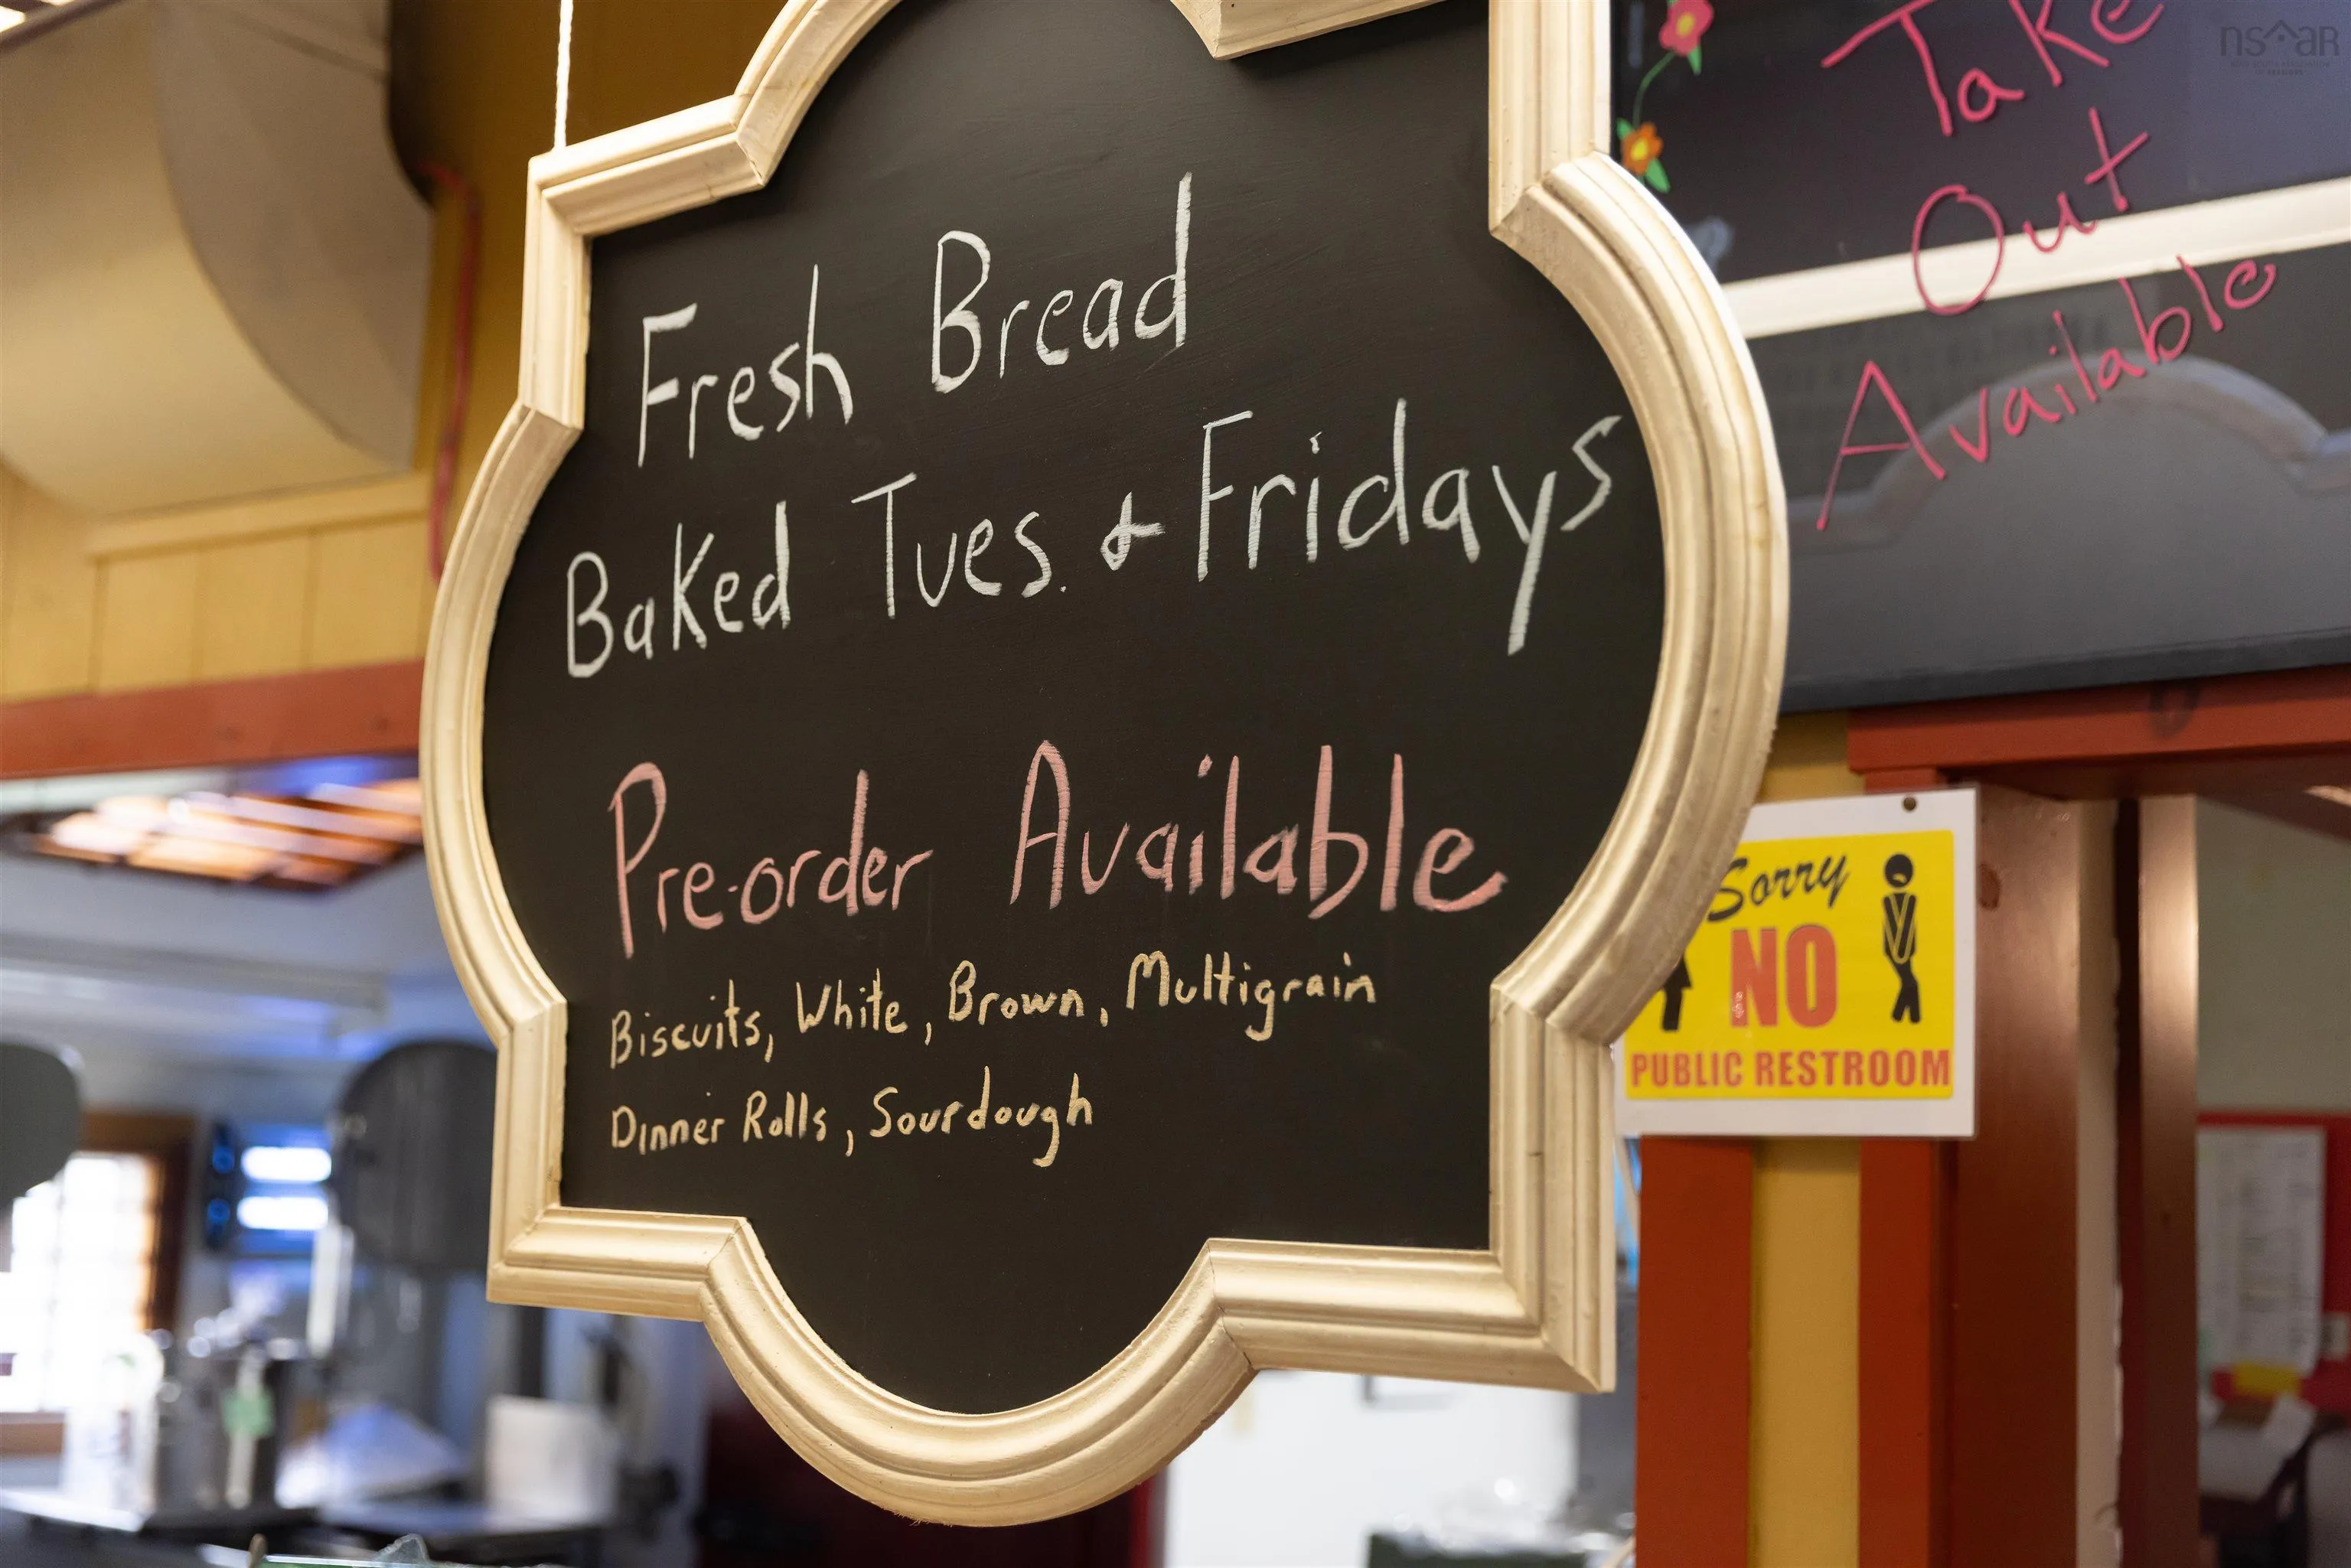 Fresh Bread
Baked Tues. & Fridays
Pre-order Available
Biscuits, White, Brown, Multigrain
Dinner Rolls, Sourdough
Take
Out
Available
Sorry
NO
PUBLIC RESTROOM
nsar